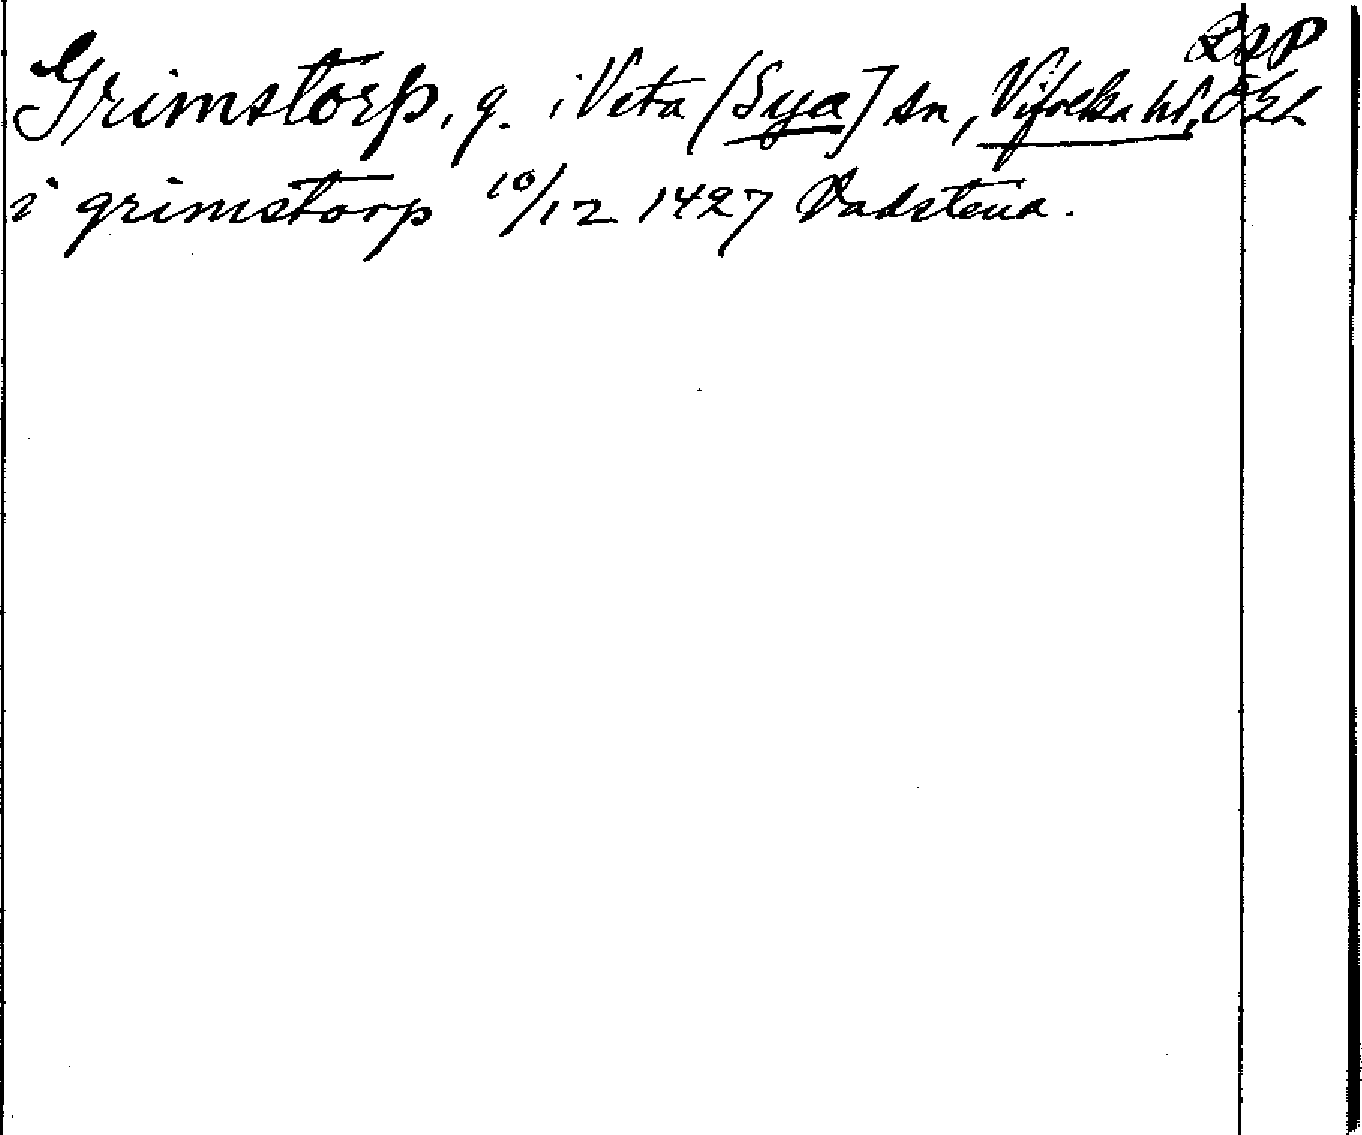 DSP
Grimstorp, g. i Veta (Sya] sn, Vifolka hd, Ögl
i grimstorp 10/12 1427 Vadstena.